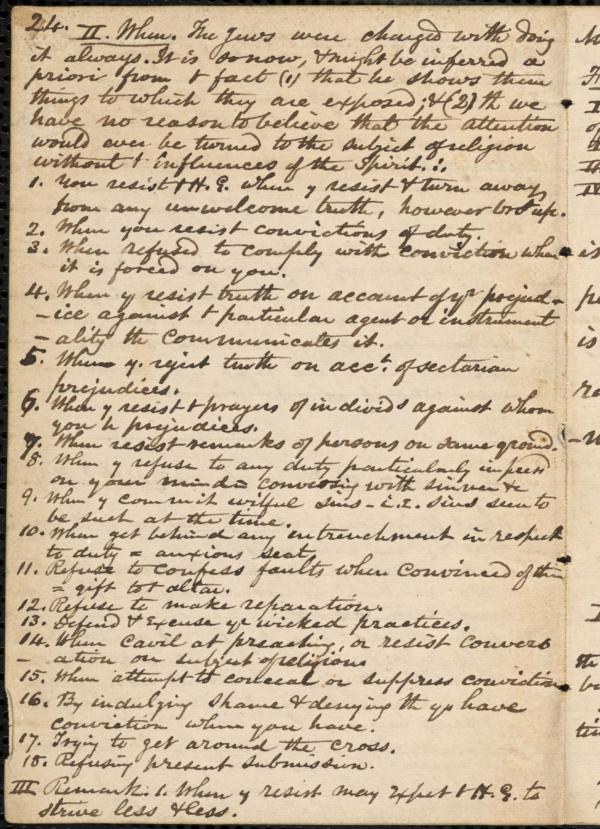 24. II. When. The Jews were charged with doing
it always. It is so now, & might be inferred a
priori from t fact (1) that he shows them
things to which they are exposed; & (2) th we
have no reason to believe that the attention
would ever be turned to the subject of religion
without t influences of the Spirit. ∴
1. You resist t H. G. when y resist & turn away
from any unwelcome truth, however brot up.
2. When you resist convictions of duty.
3. When refused to comply with conviction when
it is forced on you.
4. When y resist truth on account of yr prejud-
-ice against t particular agent or instrument
-ality th communicates it.
5. When y. reject truth on acct. of sectarian
prejudices.
6. When y resist t prayers of individs against whom
you h prejudices.
7. When resist remarks of persons on same ground.
8. When y refuse to any duty particularly impress
on your mind = conversing with sinner &c
9. When y commit wilful sins - i.e. sins seen to
be such at the time.
10. When get behind any intrenchment in respect
to duty = anxious seat
11. Refuse to confess faults when convinced of them
= gift to t altar.
12. Refuse to make reparation.
13. Defend & Excuse yr wicked practices.
14. When cavil at preaching, or resist convers
-ation on subject of religion
15. When attempt to conceal or suppress conviction
16. By indulging shame & denying th you have
conviction when you have.
17. Trying to get around the cross.
18. Refusing present submission.
III Remark. 1. When y resist may expect t H. G. to
strive less & less.